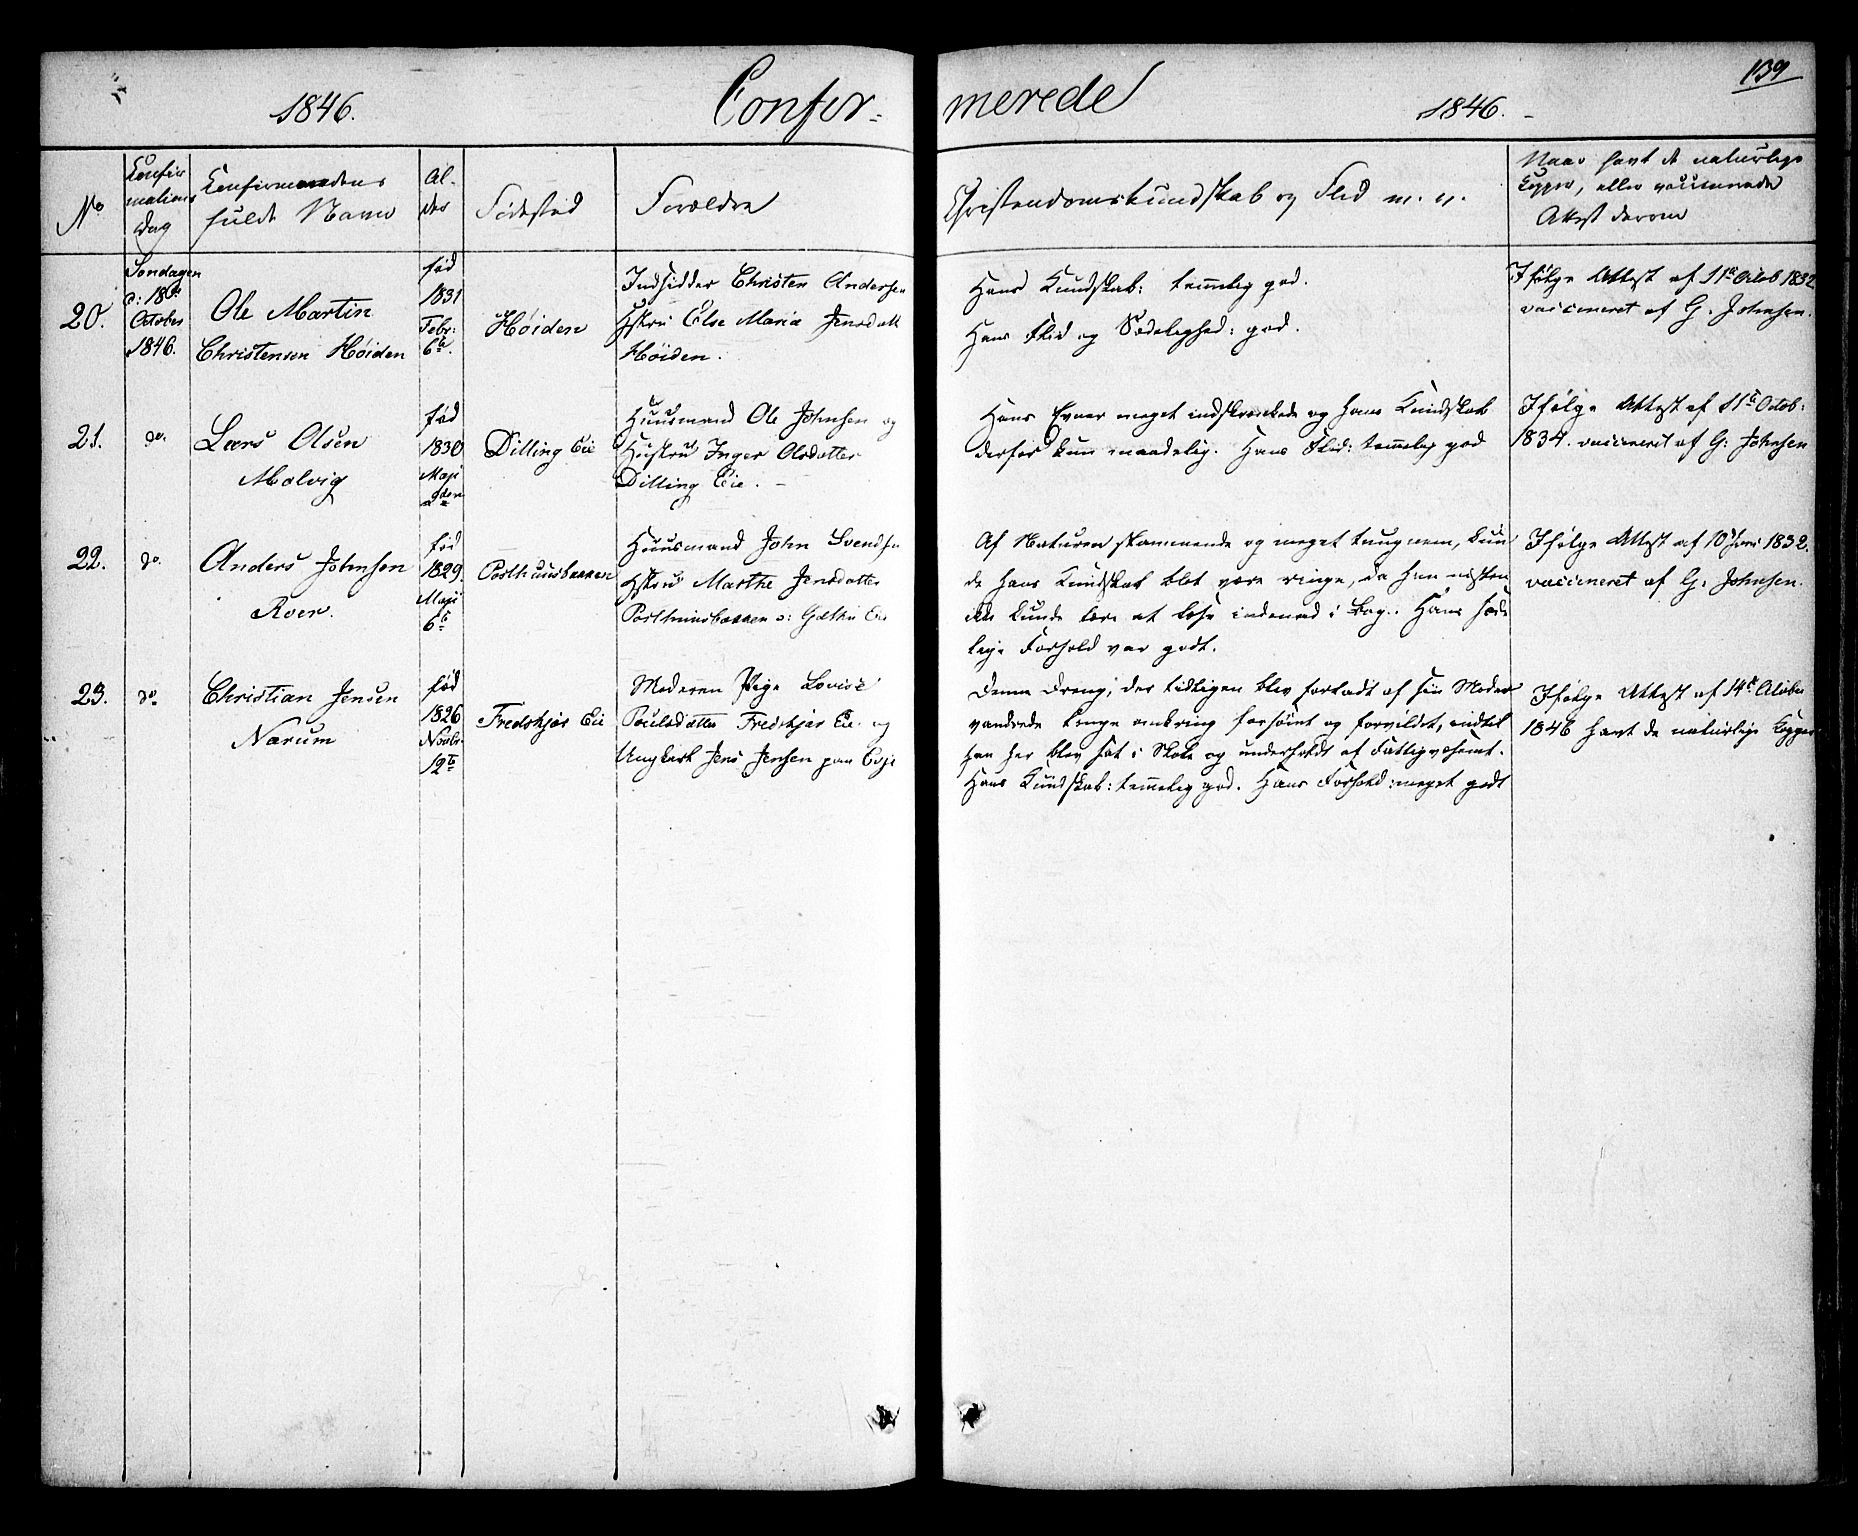 139
1846. Confir- merede 1846.
No
Konfir
mations
Dag
Konfirmandens
fulde Navn
Al-
der
Fødested
Forældre
Christendomskundskab og Flid m. v.
Naar havt de naturlige
Kopper, eller vaccinerede
Attest derom
20.
Søndagen
d: 18de
October
1846.
Ole Martin
Christensen Höiden
fød
1831
Febr:
6te.
Höiden
Indsidder Christen Andersen
Hstru Else Maria Jensdatt
Höiden.
Hans Kundskab: temmelig god.
Hans Flid og Sædelighed: god.
Ifølge Attest af 11te Octob 1832
vaccineret af G. Johnsen.
21.
do.
Lars Olsen
Malvig
fød
1830
Maji
9den
Dilling Eie
Huusmand Ole Johnsen og
Hustru Inger Olsdatter
Dilling Eie.
Hans Evner meget indskrænkede og hans Kundskab
derfor kun maadelig. Hans Flid: temmelig god
Ifølge Attest af 11te Octob:
1834. vaccineret af G: Johnsen
22.
do.
Anders Johnsen
Roer.
fød
1829.
Maji
6te
Posthuusbakken
Huusmand John Svendsen
Hstru Marthe Jensdatter
Posthuusbakken
Af Naturen stammende og meget tungnem, kun
de hans Kundskab blot være ringe, da han næsten
ikke kunde lære at læse indenad i Bog. Hans sæde
lige Forhold var godt.
Ifølge Attest af 10 Juni 1832.
vaccineret af G: Johnsen.
23.
do
Christian Jensen
Narum
fød
1826
Novbr
12te
Fredskjær Eie
Moderen Pige Lovise
Poulsdatter Fredskjær Eie og
Ungkarl Jens Jensen paa Evje
Denne Dreng, der tidligen blev forladt af sin Moder
vandrede længe omkring forsömt og forvildet, indtil
han her blev sat i Skole og underholdt af Fattigvæsenet.
Hans Kundskab: temmelig god. Hans Forhold: meget godt
Ifølge Attest af 14de October
1846 havt de naturlige Kopper